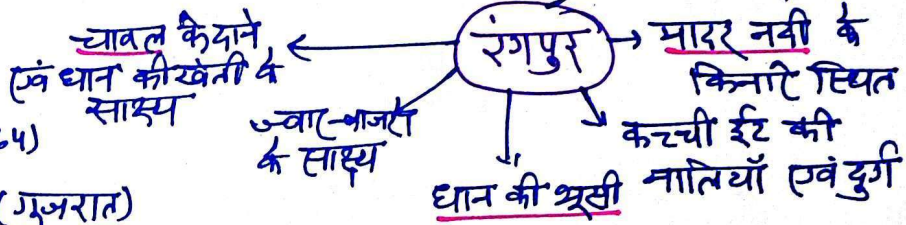 चावल के दाने
एवं धान की खेती के
साक्ष्य
रंगपुर
मादर नदी के
किनारे स्थित
ज्वार-बाजरा
के साक्ष्य
धान की भूसी
कच्ची ईट की
नालियाँ एवं दुर्ग
54)
(गुजरात)